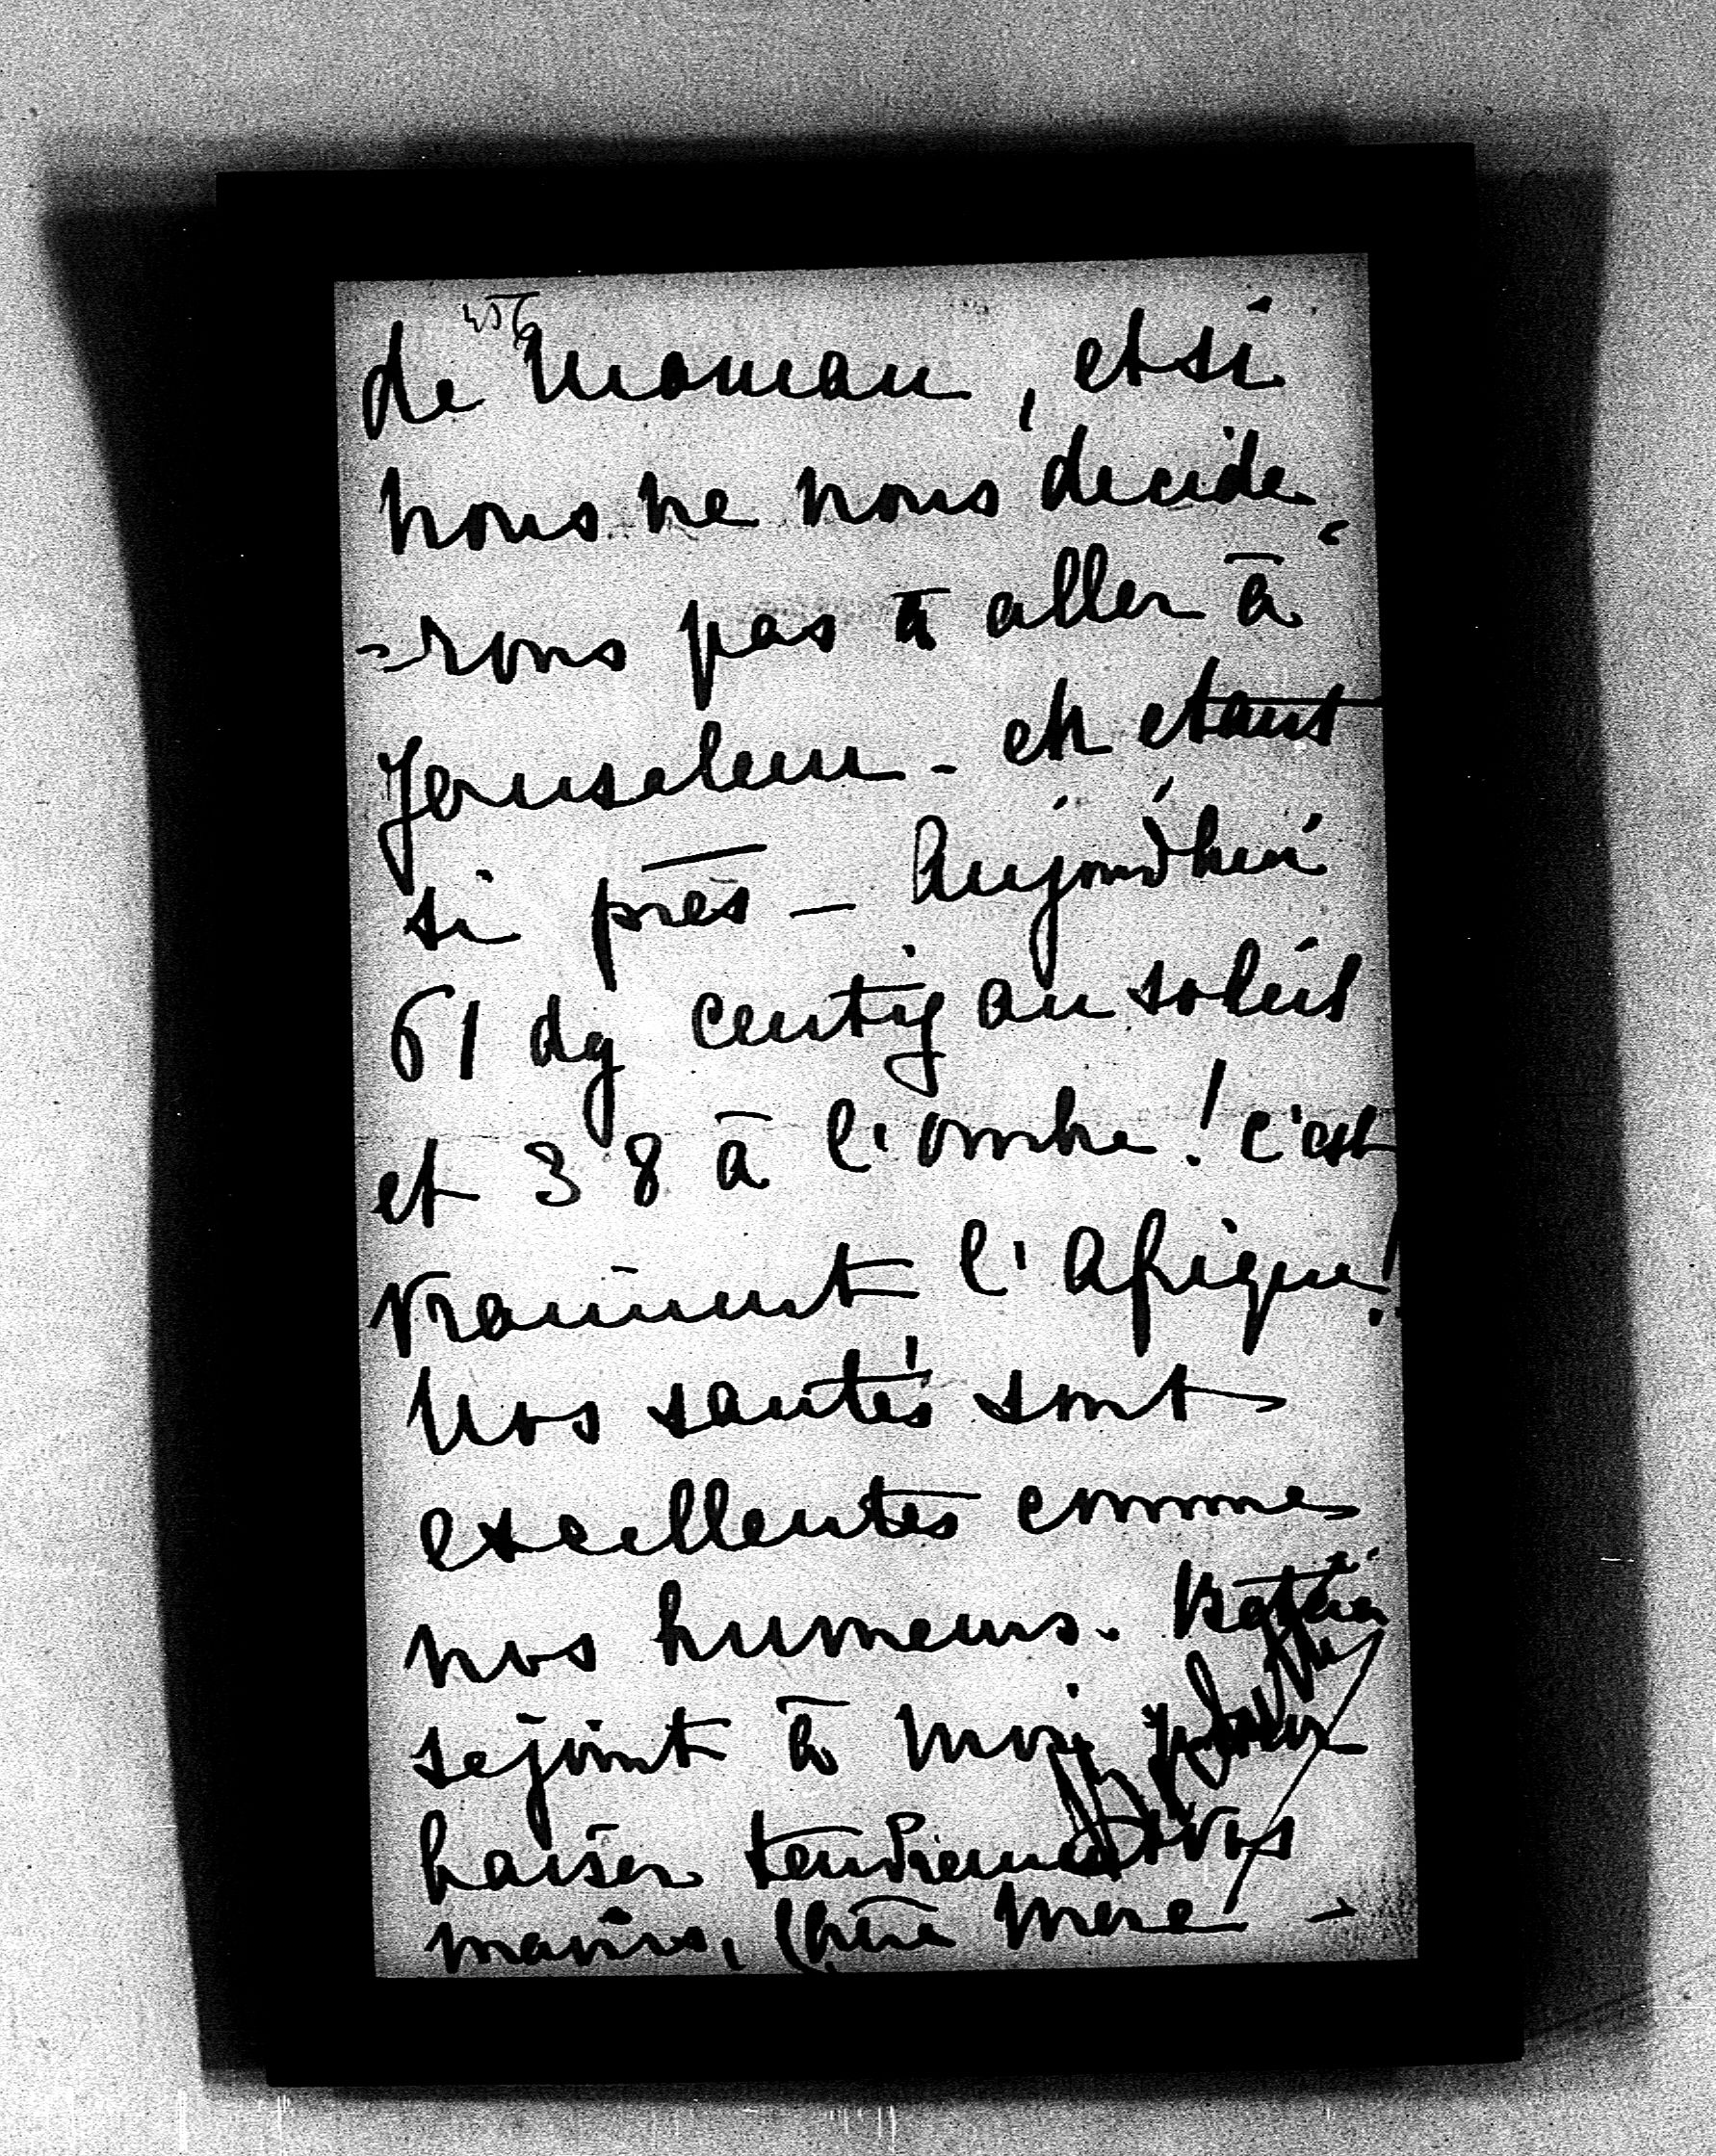 de Maman, et si
nous ne nous decide
-rons pas à aller à
Jerusalem - en etant
si près - Aujourd'hui
61 dg centig au soleil
et 38 à l'ombre! c'est
vraiment l'Afrique!
Nos santés sont
excellentes comme
nos humeurs. Katia
se joint à moi pour
baiser tendrement vos
mains, Chère Mere -